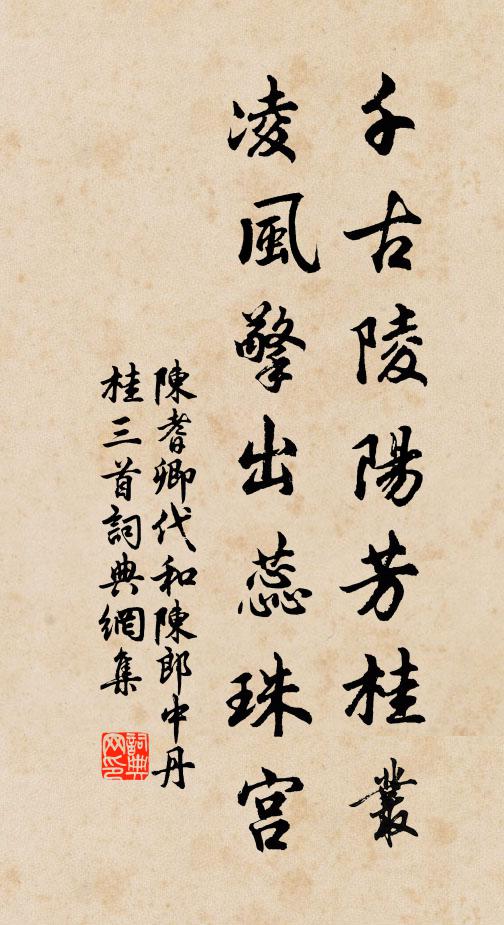 千古陵陽芳桂叢
凌風擎出蕊珠宮
陳耆卿代和陳郎中丹
桂三首詞典網集
詞典
网印